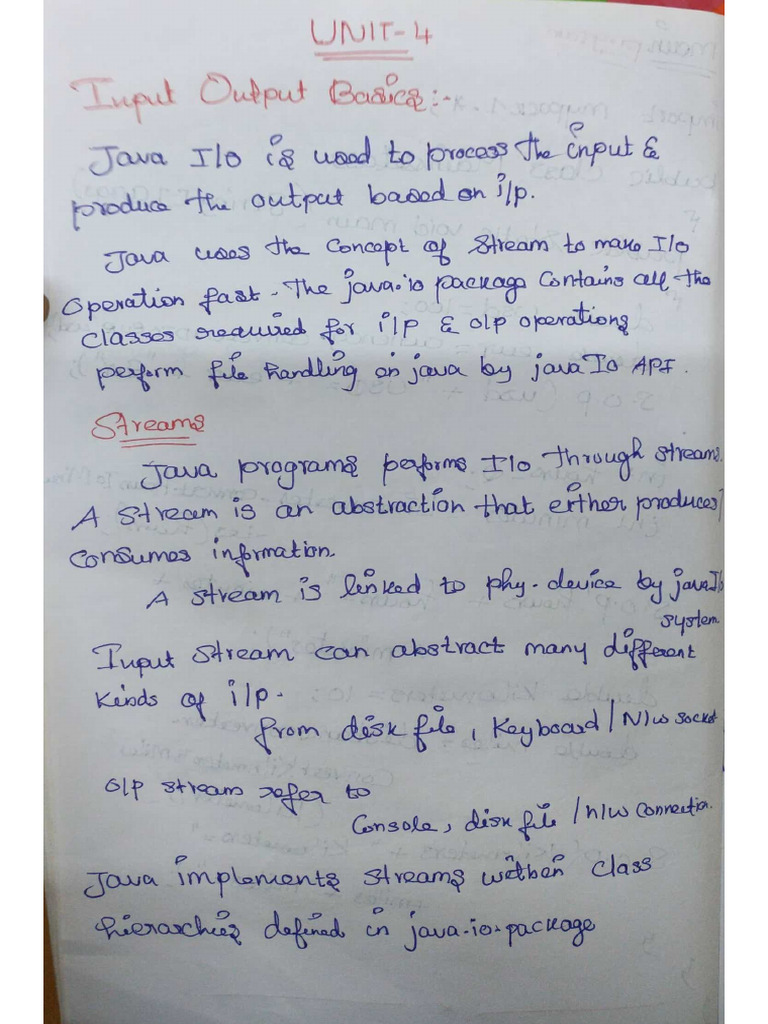 UNIT-4
Input Output Basics:-
Java I/o is used to process the input &
produce the output based on i/p.
Java uses the Concept of Stream to make I/o
operation fast. The java.io package Contains all the
classes required for i/p & o/p operations
perform file handling in java by java Io API.
Streams
Java programs performs I/o through stream.
A Stream is an abstraction that either produces/
Consumes information.
A stream is linked to phy. device by java I/o
system.
Input Stream can abstract many different
kinds of i/p.
from disk file, Keyboard / N/w socket
O/P stream refer to
Console, disk file / N/w Connection.
Java implements streams within class
hierarchies defined in java.io.package